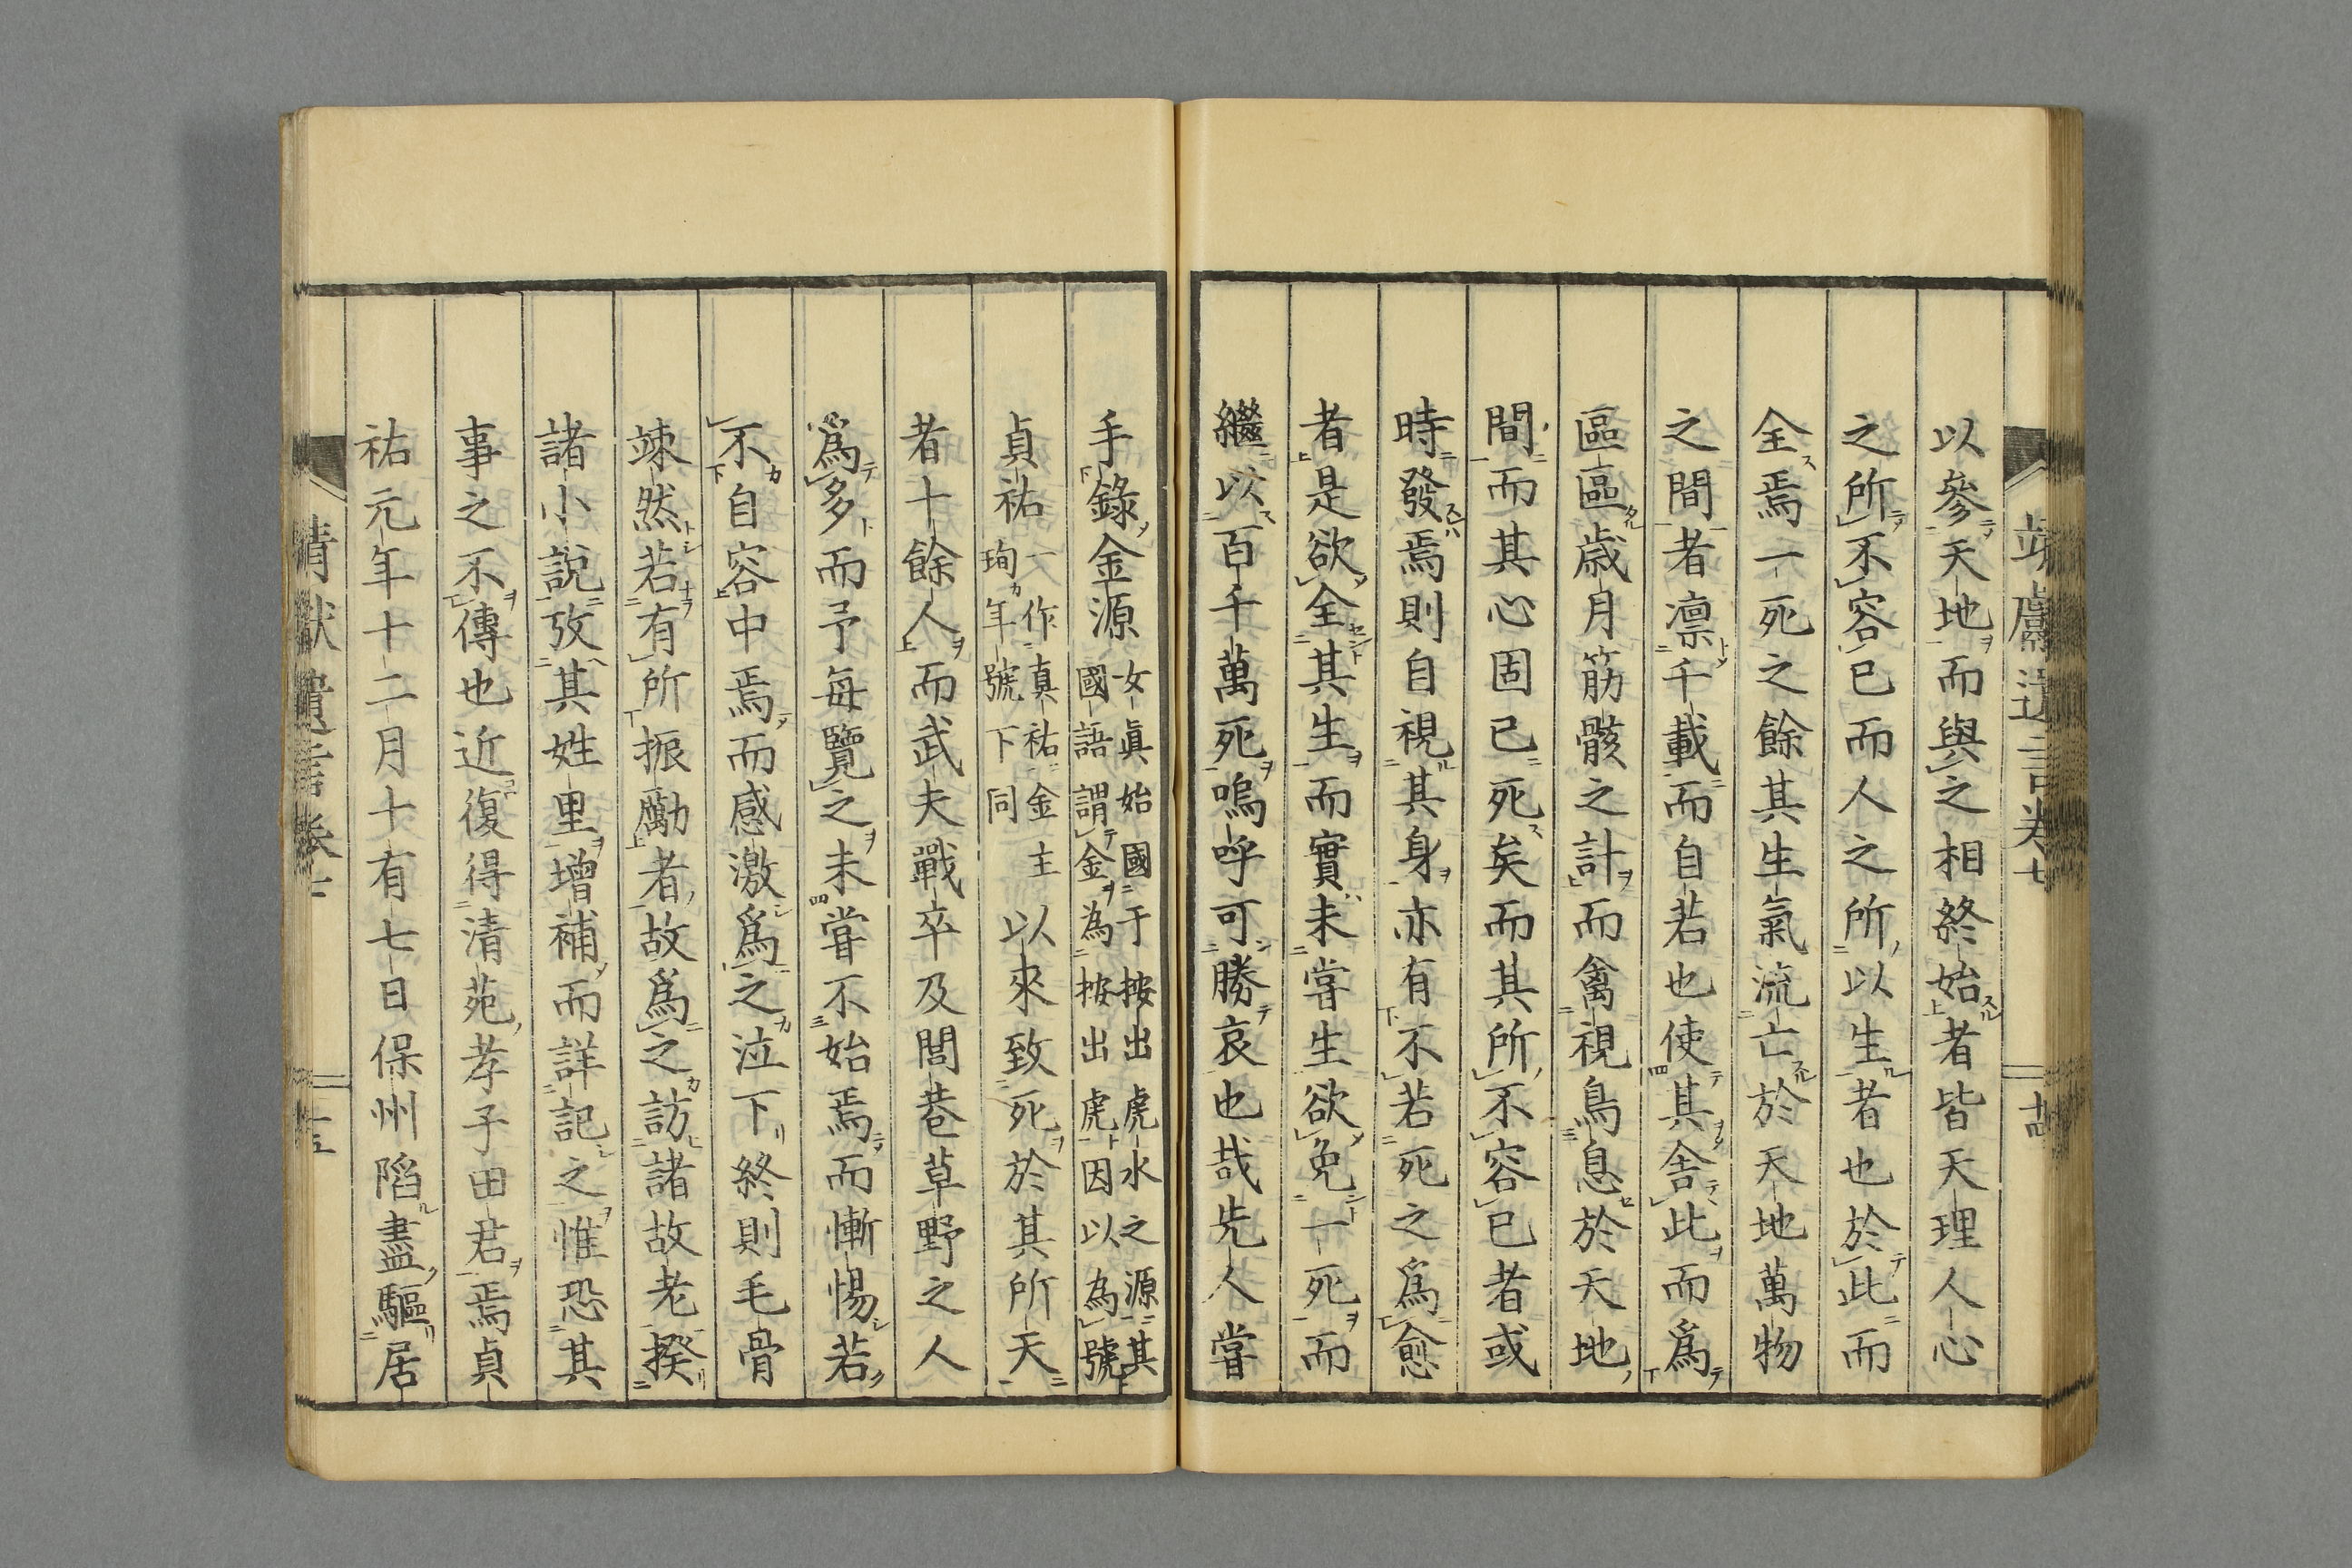 以參天地而與之相終始者皆天理人心
之所不容已而人之所以生者也於此而
全焉一死之餘其生氣流亡於天地萬物
之間者凛千載而自若也使其舎此而爲
區區歳月筋骸之計而禽視鳥息於天地
間而其心固已死矣而其所不容已者或
時發焉則自視其身亦有不若死之爲愈
者是欲全其生而實未嘗生欲免一死而
繼以百千萬死嗚呼可勝哀也哉先人嘗
手錄金源女眞始國于按出虎水之源其
國語謂金為按出虎因以為號
貞祐一作真祐金主
珣年號下同以來致死於其所天
者十餘人而武夫戰卒及閭巷草野之人
爲多而予毎覽之未嘗不始焉而慚惕若
不自容中焉而感激爲之泣下終則毛骨
竦然若有所振勵者故爲之訪諸故老揆
諸小説攷其姓里增補而詳記之惟恐其
事之不傳也近復得清苑孝子田君焉貞
祐元年十二月十有七日保州陷盡驅居
靖獻遺言卷七